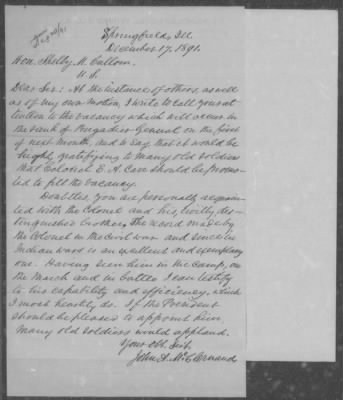 Springfield, Ill.
December 17, 1891.
Hon. Shelby M. Cullom.
U. S.
Dear Sir: At the instance of others, as well
as of my own motion, I write to call your at-
tention to the vacancy which will occur in
the rank of Brigadier-General on the first
of next month, and to say, that it would be
highly gratifying to many old soldiers
that Colonel E. A. Carr should be promo-
ted to fill the vacancy.
Doubtless, you are personally acquain-
ted with the Colonel and his, civilly, dis-
tinguished brothers. The record made by
the Colonel in the civil war and since in
Indian wars is an excellent and exemplary
one. Having seen him in the camp, on
the march and in battle I can testify
to his capability and efficiency, which
I most heartily do. If the President
should be pleased to appoint him,
many old soldiers would applaud.
Your Obt. Servt.
John A. McClernand